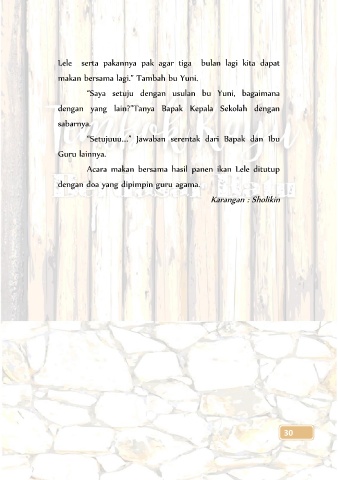 Lele serta pakannya pak agar tiga bulan lagi kita dapat
makan bersama lagi." Tambah bu Yuni.
"Saya setuju dengan usulan bu Yuni, bagaimana
dengan yang lain?"Tanya Bapak Kepala Sekolah dengan
sabarnya.
"Setujuuu..." Jawaban serentak dari Bapak dan Ibu
Guru lainnya.
Acara makan bersama hasil panen ikan Lele ditutup
dengan doa yang dipimpin guru agama.
Karangan : Sholikin
30